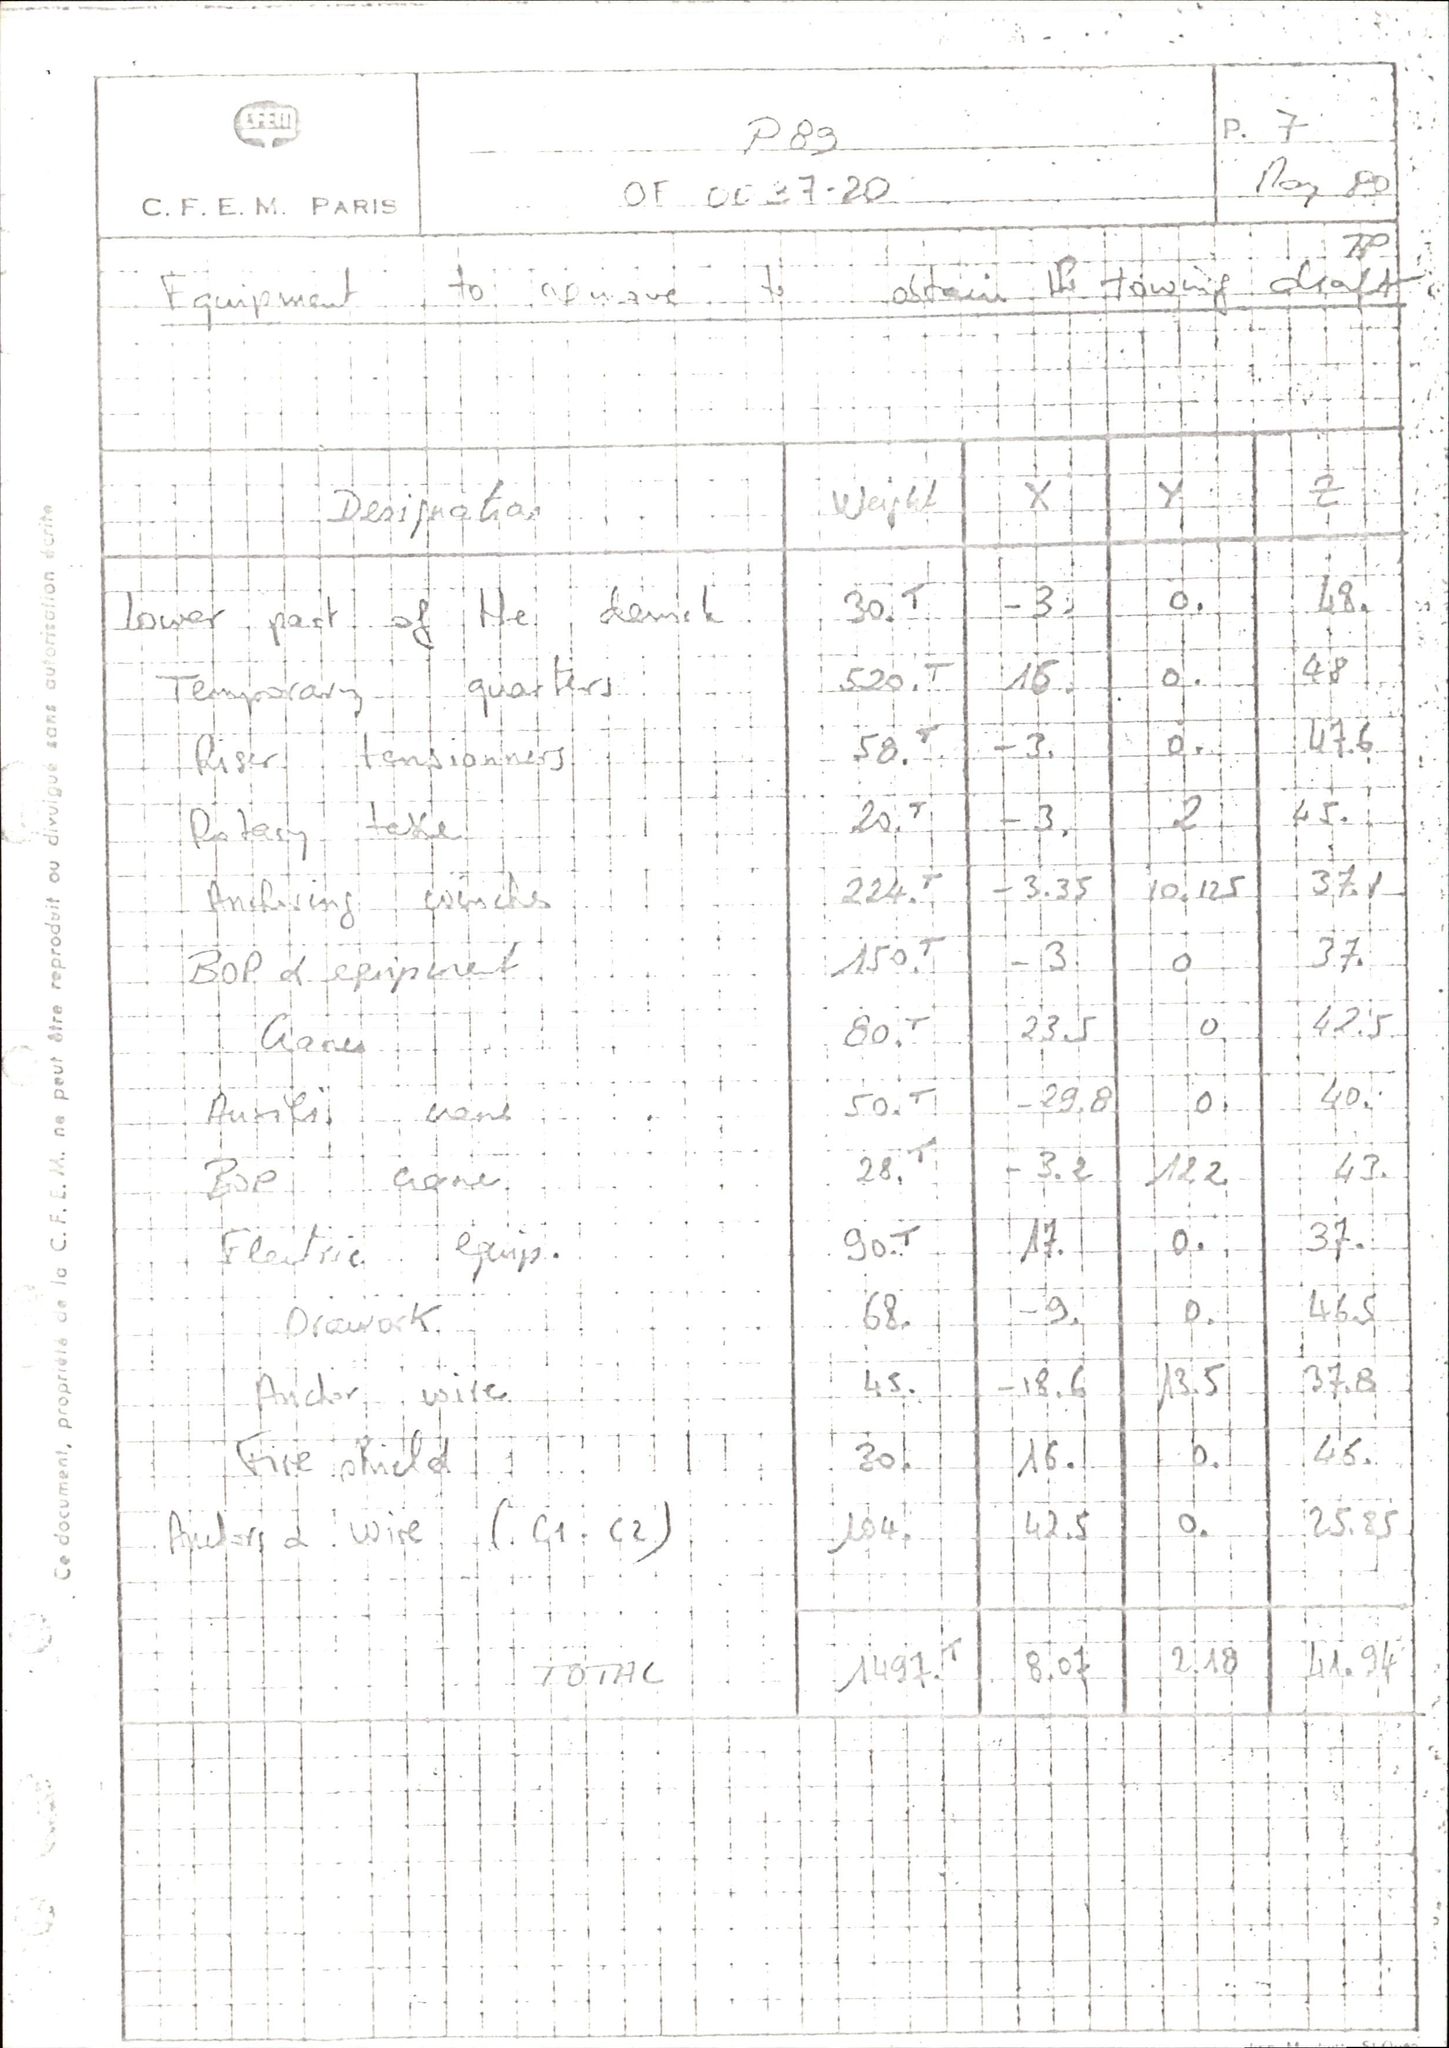 CFEM
C. F. E. M. PARIS
P 89
OF 0027-20
P. 7
May 80
Equipment to remove to obtain the towing draft
Designation Weight X Y Z
lower part of the derrick 30.T -3. 0. 48.
Temporary quarters 520.T 16. 0. 48
Riser tensionners 58.T -3. 0. 47.6
Rotary table 20.T -3. 2 45.
Anchoring winches 224.T -3.35 10.125 37.1
BOP & equipment 150.T -3 0 37.
Cranes 80.T 23.5 0 42.5
Auxili. crane 50.T -29.8 0. 40.
BOP crane 28.T -3.2 12.2 43.
Electric equip. 90.T 17. 0. 37.
Drawork 68. -9. 0. 46.5
Anchor wire 45. -18.6 13.5 37.8
Fire shield 30. 16. 0. 46.
Anchors & wire (C1. C2) 104. 42.5 0. 25.85
TOTAL 1497.T 8.07 2.18 41.94
Ce document, propriété de la C.F.E.M. ne peut être reproduit ou divulgué sans autorisation écrite